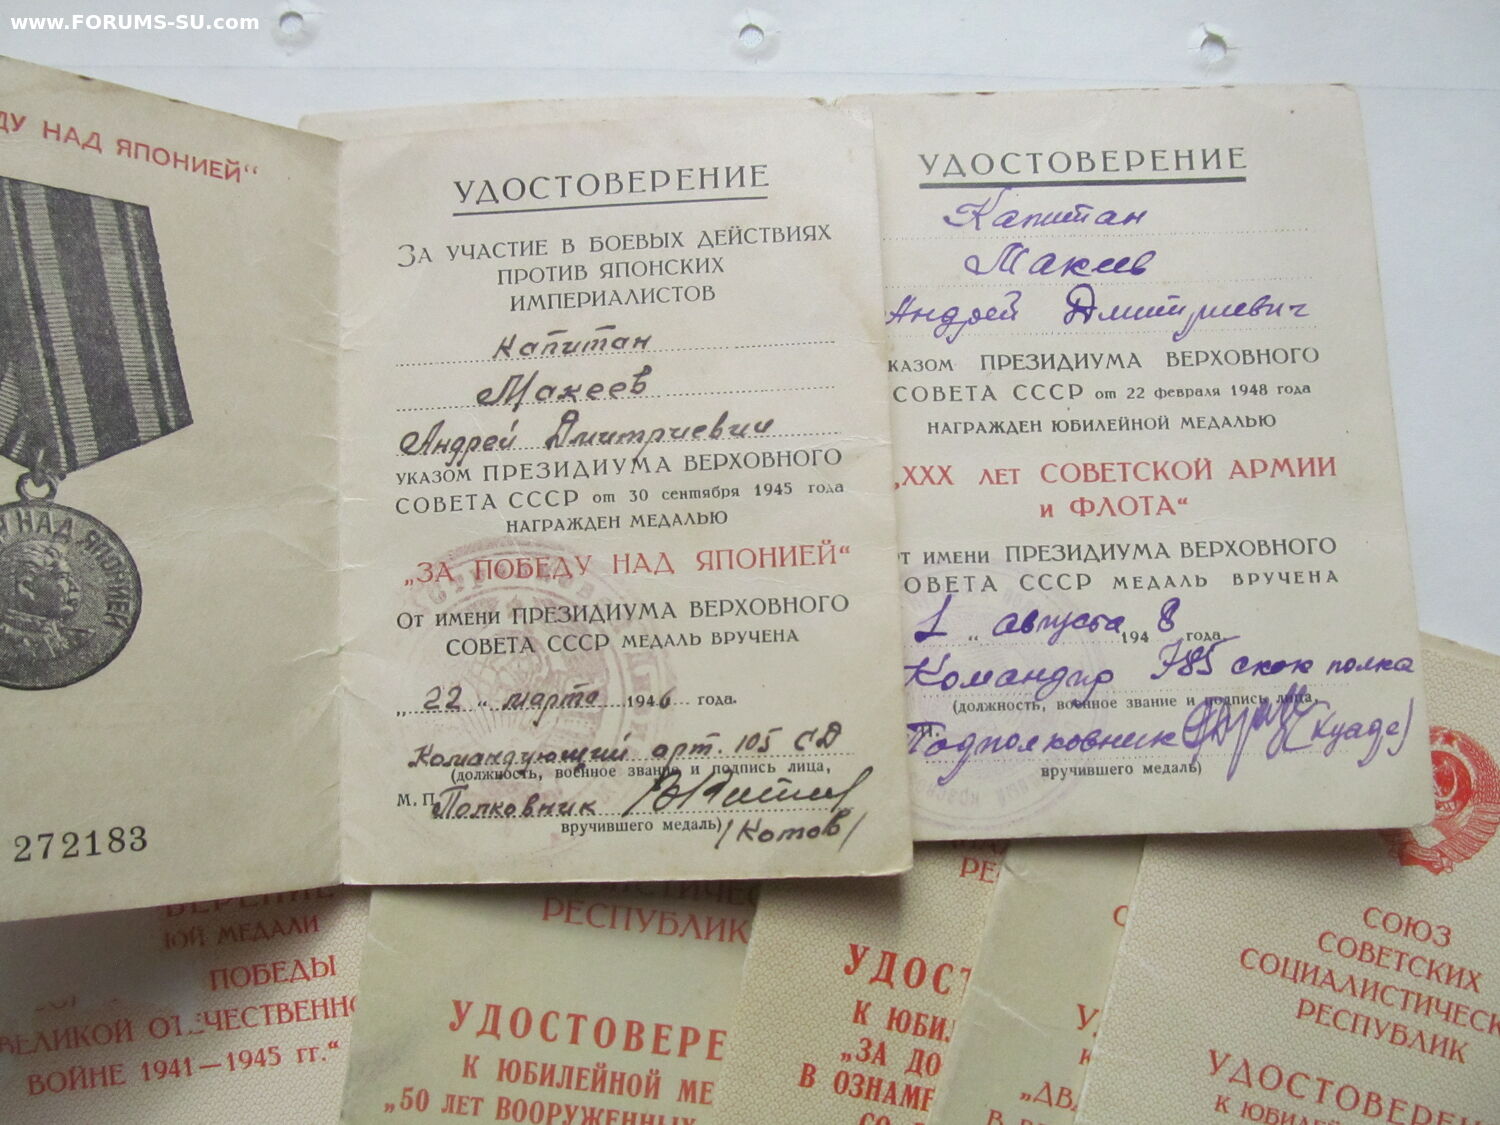 www.FORUMS-SU.com
ДУ НАД ЯПОНИЕЙ“
НАД ЯПОНИЕЙ
272183
УДОСТОВЕРЕНИЕ
ЗА УЧАСТИЕ В БОЕВЫХ ДЕЙСТВИЯХ
ПРОТИВ ЯПОНСКИХ
ИМПЕРИАЛИСТОВ
Капитан
Макеев
Андрей Дмитриевич
УКАЗОМ ПРЕЗИДИУМА ВЕРХОВНОГО
СОВЕТА СССР от 30 сентября 1945 года
НАГРАЖДЕН МЕДАЛЬЮ
„ЗА ПОБЕДУ НАД ЯПОНИЕЙ“
ОТ ИМЕНИ ПРЕЗИДИУМА ВЕРХОВНОГО
СОВЕТА СССР МЕДАЛЬ ВРУЧЕНА
„22“ марта 1946 года.
Командующий арт. 105 СД
(должность, военное звание и подпись лица,
М. П. Полковник
вручившего медаль) /Котов/
УДОСТОВЕРЕНИЕ
Капитан
Макеев
Андрей Дмитриевич
УКАЗОМ ПРЕЗИДИУМА ВЕРХОВНОГО
СОВЕТА СССР от 22 февраля 1948 года
НАГРАЖДЕН ЮБИЛЕЙНОЙ МЕДАЛЬЮ
„XXX ЛЕТ СОВЕТСКОЙ АРМИИ
и ФЛОТА“
ОТ ИМЕНИ ПРЕЗИДИУМА ВЕРХОВНОГО
СОВЕТА СССР МЕДАЛЬ ВРУЧЕНА
1 “ августа 1948 года.
Командир 785 ского полка
(должность, военное звание и подпись лица,
Подполковник
вручившего медаль)
ВЕРЕНИЕ
ОЙ МЕДАЛИ
ПОБЕДЫ
ВЕЛИКОЙ ОТЕЧЕСТВЕННО
ВОЙНЕ 1941—1945 гг.“
РЕСПУБЛИК
УДОСТОВЕРЕ
К ЮБИЛЕЙНОЙ МЕ
„50 ЛЕТ ВООРУЖЕННЫХ
РЕ
УДОСТ
К ЮБИЛ
„ЗА ДО
В ОЗНАМЕ
С
У
К
„ДВА
СОЮЗ
СОВЕТСКИХ
СОЦИАЛИСТИЧЕСК
РЕСПУБЛИК
УДОСТОВЕРЕН
К ЮБИЛЕ